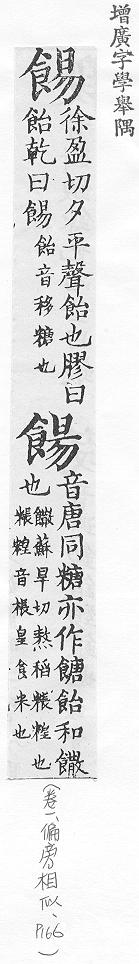 增廣字學舉隅
餳徐盈切夕平聲飴也膠曰
飴乾曰餳飴音移糖也
餳音唐同糖亦作餹飴和饊
也饊蘇旱切熬稻粻䊗也
粻䊗音棖皇食米也
(卷一、偏旁相似、P166)